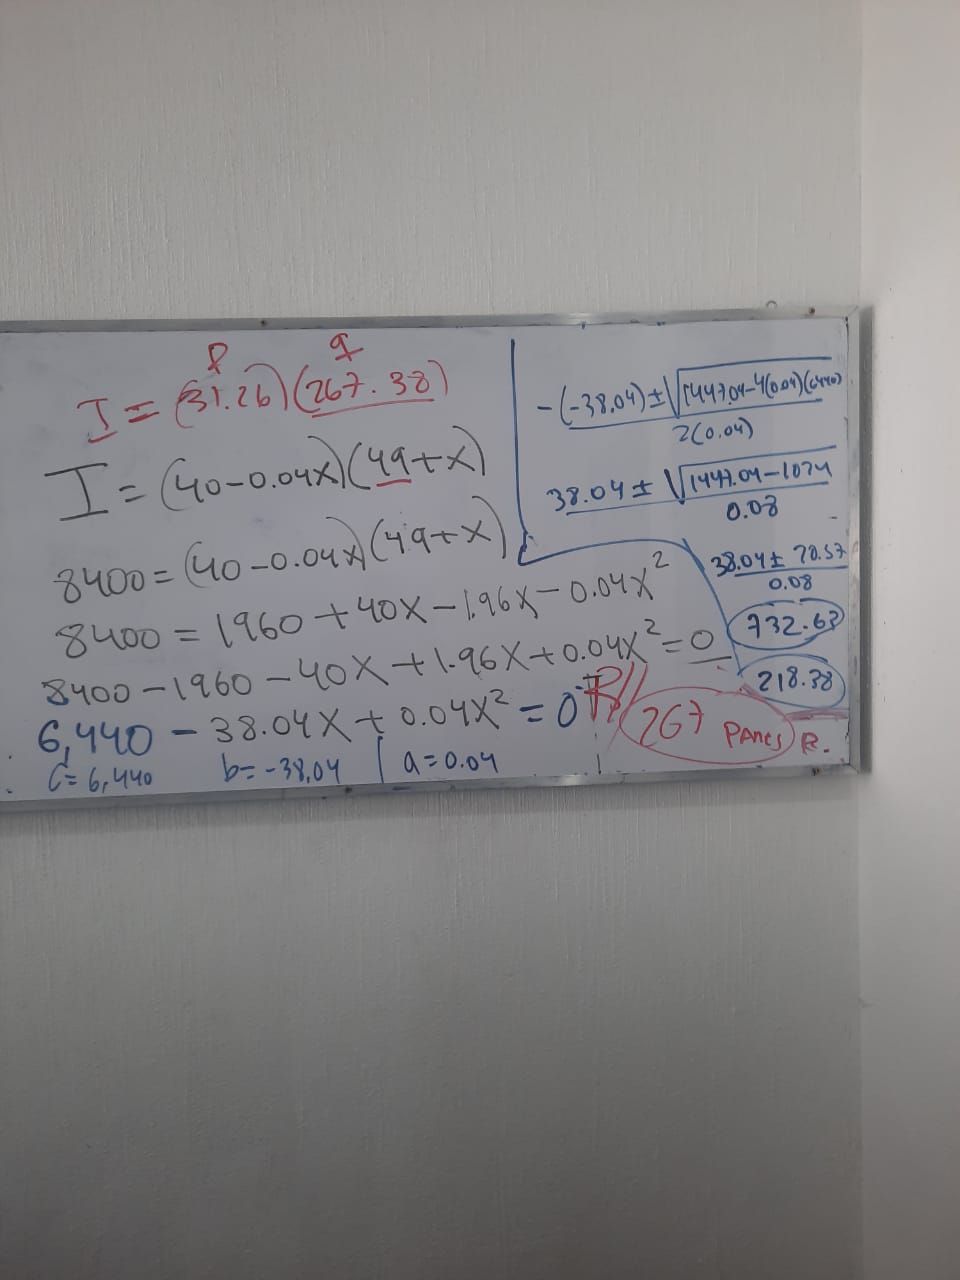 P q
I = (31.26)(267.38)
I = (40-0.04x)(49+x)
8400 = (40-0.04x)(49+x)
8400 = 1960 + 40x - 1.96x - 0.04x²
8400 - 1960 - 40x + 1.96x + 0.04x² = 0
6,440 - 38.04x + 0.04x² = 0
c = 6,440 b = -38,04 | a = 0.04
-(-38.04) ± √1447.04-4(0.04)(6440)
2(0.04)
38.04 ± √1447.04-1024
0.08
38.04 ± 20.57
0.08
732.63
218.38
R//
267 Panes R.